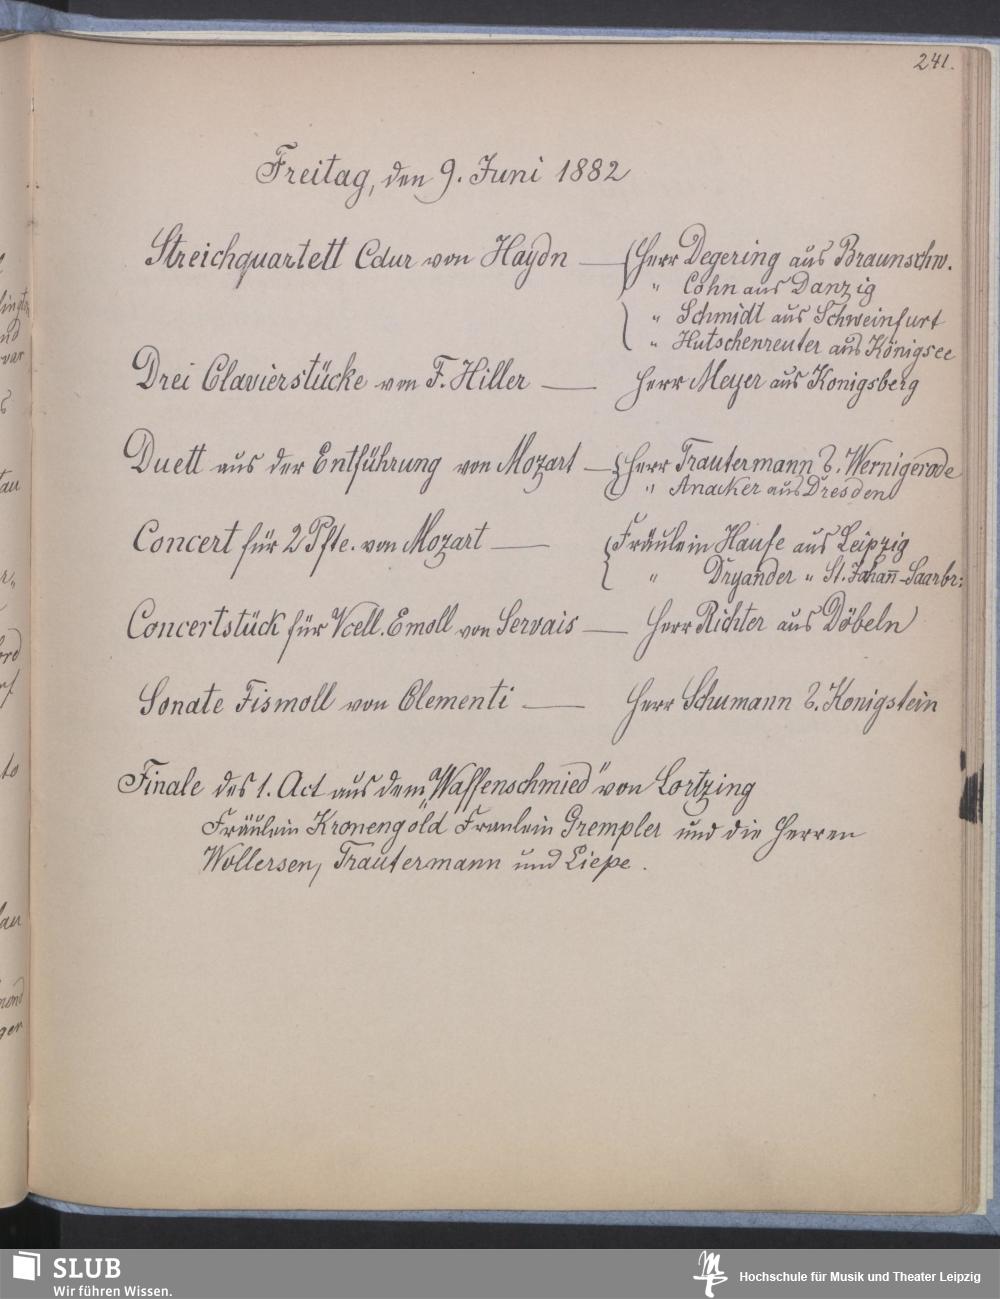 241.
Freitag, den 9. Juni 1882
Streichquartett Cdur von Haydn — Herr Degering aus Braunschw.
" Cohn aus Danzig
" Schmidt aus Schweinfurt
" Hutschenreuter aus Königsee
Drei Clavierstücke von F. Hiller — Herr Meyer aus Konigsberg
Duett aus der Entführung von Mozart — Herr Trautermann a. Wernigerode
" Anacker aus Dresden
Concert für 2 Pfte. von Mozart — Fräulein Haufe aus Leipzig
" Dryander " St. Johan̄-Saarbr:
Concertstück für Vcell. Emoll von Servais — Herr Richter aus Döbeln
Sonate Fismoll von Clementi — Herr Schumann a. Konigstein
Finale des 1. Act aus dem „Waffenschmied" von Lortzing
Fräulein Kronengold Fraulein Grempler und die Herren
Wollersen, Trautermann und Liepe.
SLUB
Wir führen Wissen.
Hochschule für Musik und Theater Leipzig